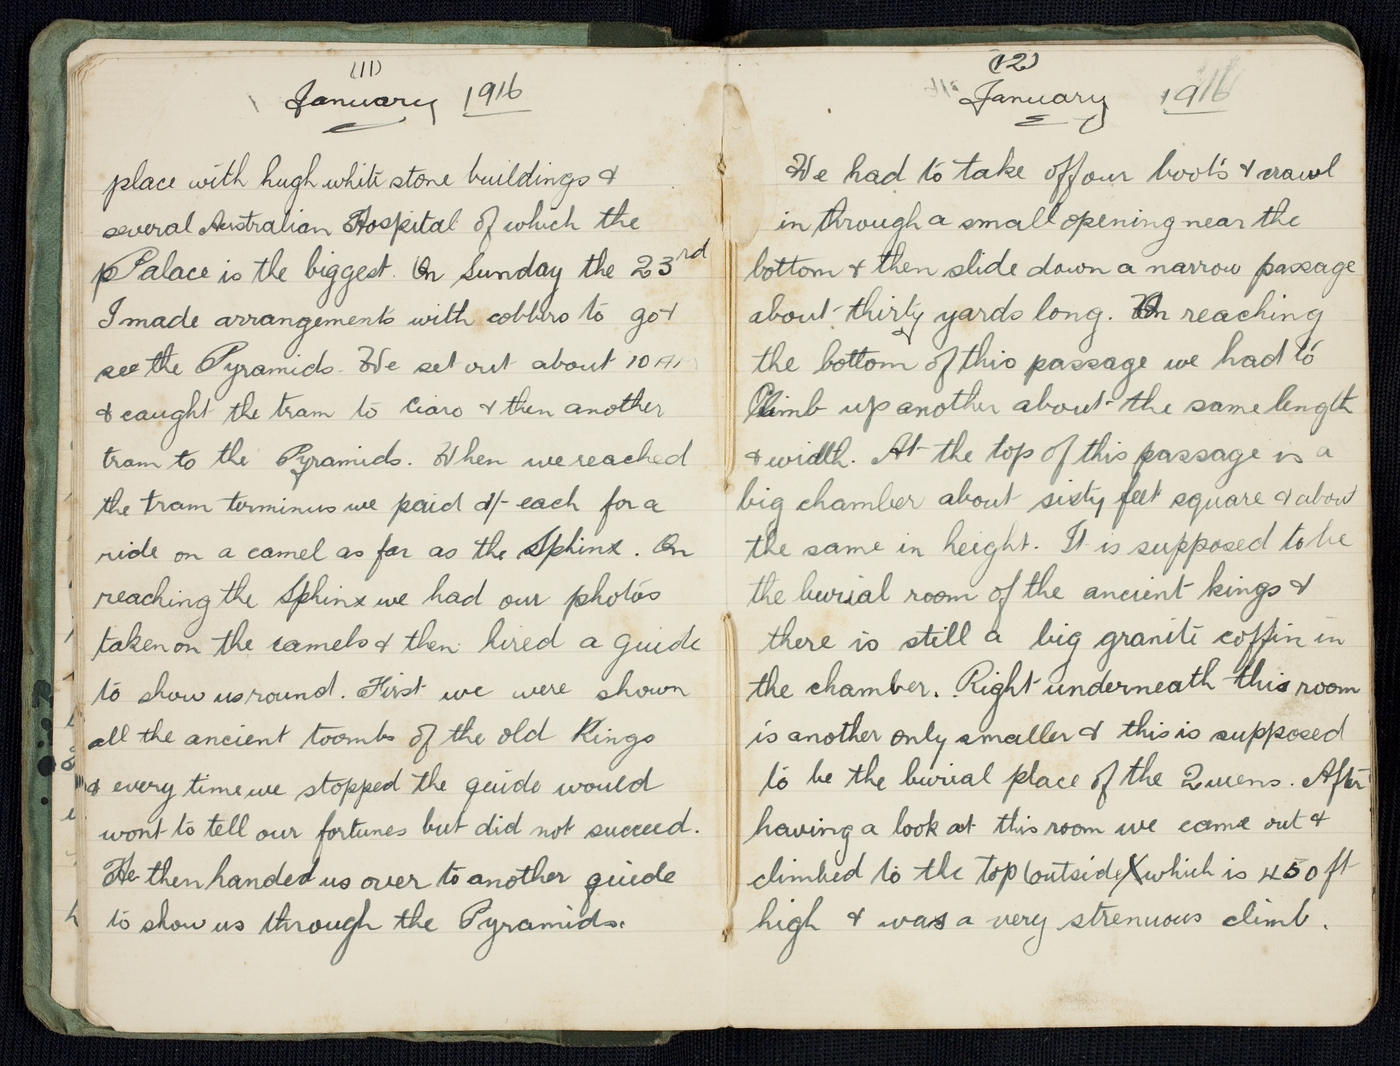 (11)
January 1916
place with hugh white stone buildings &
several Australian Hospital of which the
Palace is the biggest. On Sunday the 23rd
I made arrangements with cobbers to go &
see the Pyramids. We set out about 10 AM
& caught the tram to Ciaro & then another
tram to the Pyramids. When we reached
the tram terminus we paid /- each for a
ride on a camel as far as the Sphinx. On
reaching the Sphinx we had our photos
taken on the camels & then hired a guide
to show us round. First we were shown
all the ancient toombs of the old Kings
& every time we stopped the guide would
wont to tell our fortunes but did not succeed.
He then handed us over to another guide
to show us through the Pyramids.
(12)
January 1916
We had to take off our boots & crawl
in through a small opening near the
bottom & then slide down a narrow passage
about thirty yards long. On reaching
the bottom of this passage we had to
Climb up another about the same length
& width. At the top of this passage is a
big chamber about sixty feet square & about
the same in height. It is supposed to be
the burial room of the ancient kings &
there is still a big granite coffin in
the chamber. Right underneath this room
is another only smaller & this is supposed
to be the burial place of the Queens. After
having a look at this room we came out &
climbed to the top (outside) which is 450 ft
high & was a very strenuous climb.